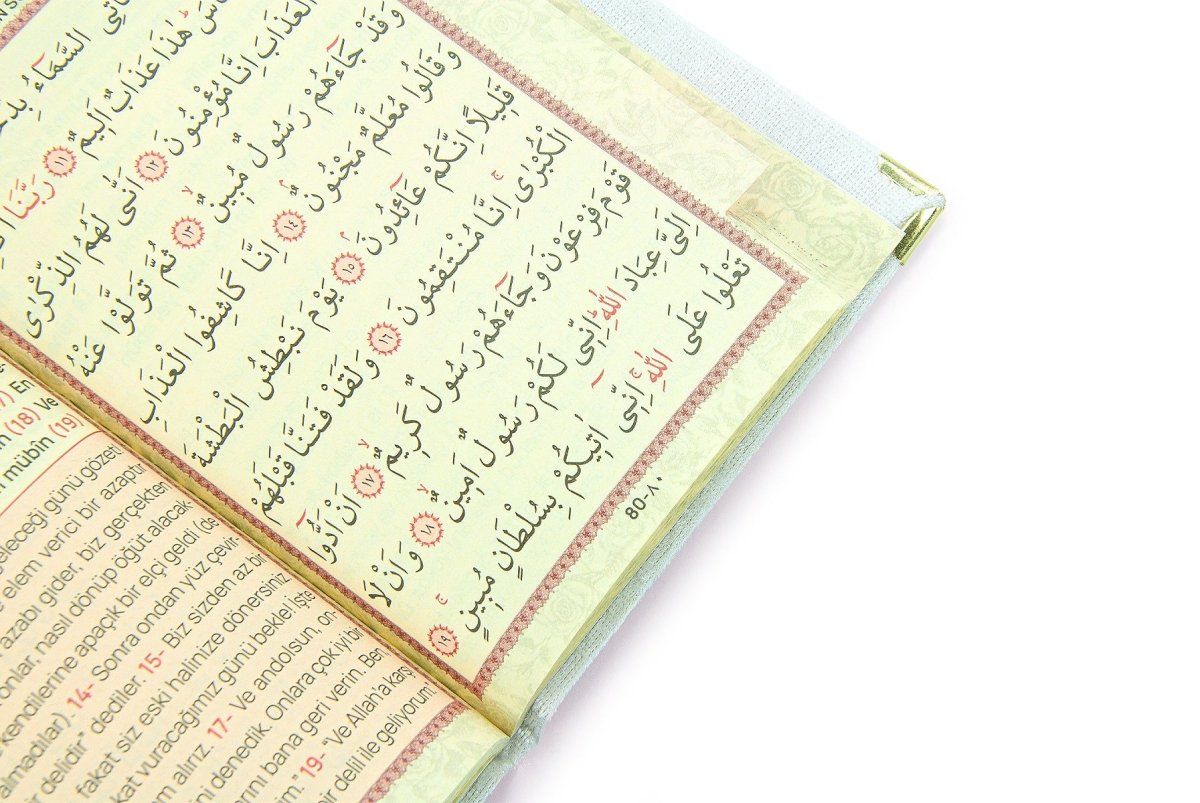 تَأْتِى السَّمَٓاءُ
هٰذَا عَذَابٌ اَل۪يمٌ ١١ رَبَّنَا
الْعَذَابَ اِنَّا مُؤْمِنُونَ ١٢ اَنّٰى لَهُمُ الذِّكْرٰى
وَقَدْ جَٓاءَهُمْ رَسُولٌ مُب۪ينٌ ١٣ ثُمَّ تَوَلَّوْا عَنْهُ
وَقَالُوا مُعَلَّمٌ مَجْنُونٌ ١٤ اِنَّا كَاشِفُوا الْعَذَابِ
قَل۪يلًا اِنَّكُمْ عَٓائِدُونَ ١٥ يَوْمَ نَبْطِشُ الْبَطْشَةَ
الْكُبْرٰى اِنَّا مُنْتَقِمُونَ ١٦ وَلَقَدْ فَتَنَّا قَبْلَهُمْ
قَوْمَ فِرْعَوْنَ وَجَٓاءَهُمْ رَسُولٌ كَر۪يمٌ ١٧ اَنْ اَدُّٓوا
اِلَيَّ عِبَادَ اللّٰهِ اِنّ۪ى لَكُمْ رَسُولٌ اَم۪ينٌ ١٨ وَاَنْ لَا
تَعْلُوا عَلَى اللّٰهِ اِنّ۪ٓى اٰت۪يكُمْ بِسُلْطَانٍ مُب۪ينٍ ١٩
80-٨٠
En
(18) Ve
mübîn (19)
eleceği günü gözet!
elem verici bir azaptır.
azabı gider, biz gerçekten
onlar, nasıl dönüp öğüt alacak-
kendilerine apaçık bir elçi geldi (de
almadılar). 14- Sonra ondan yüz çevir-
bir delidir" dediler. 15- Biz sizden az bir
fakat siz eski halinize dönersiniz.
vuracağımız günü bekle! İşte
alırız. 17- Ve andolsun, on-
denedik. Onlara çok iyi bir
bana geri verin. Ben,
19- "Ve Allah'a karşı
bir delil ile geliyorum."